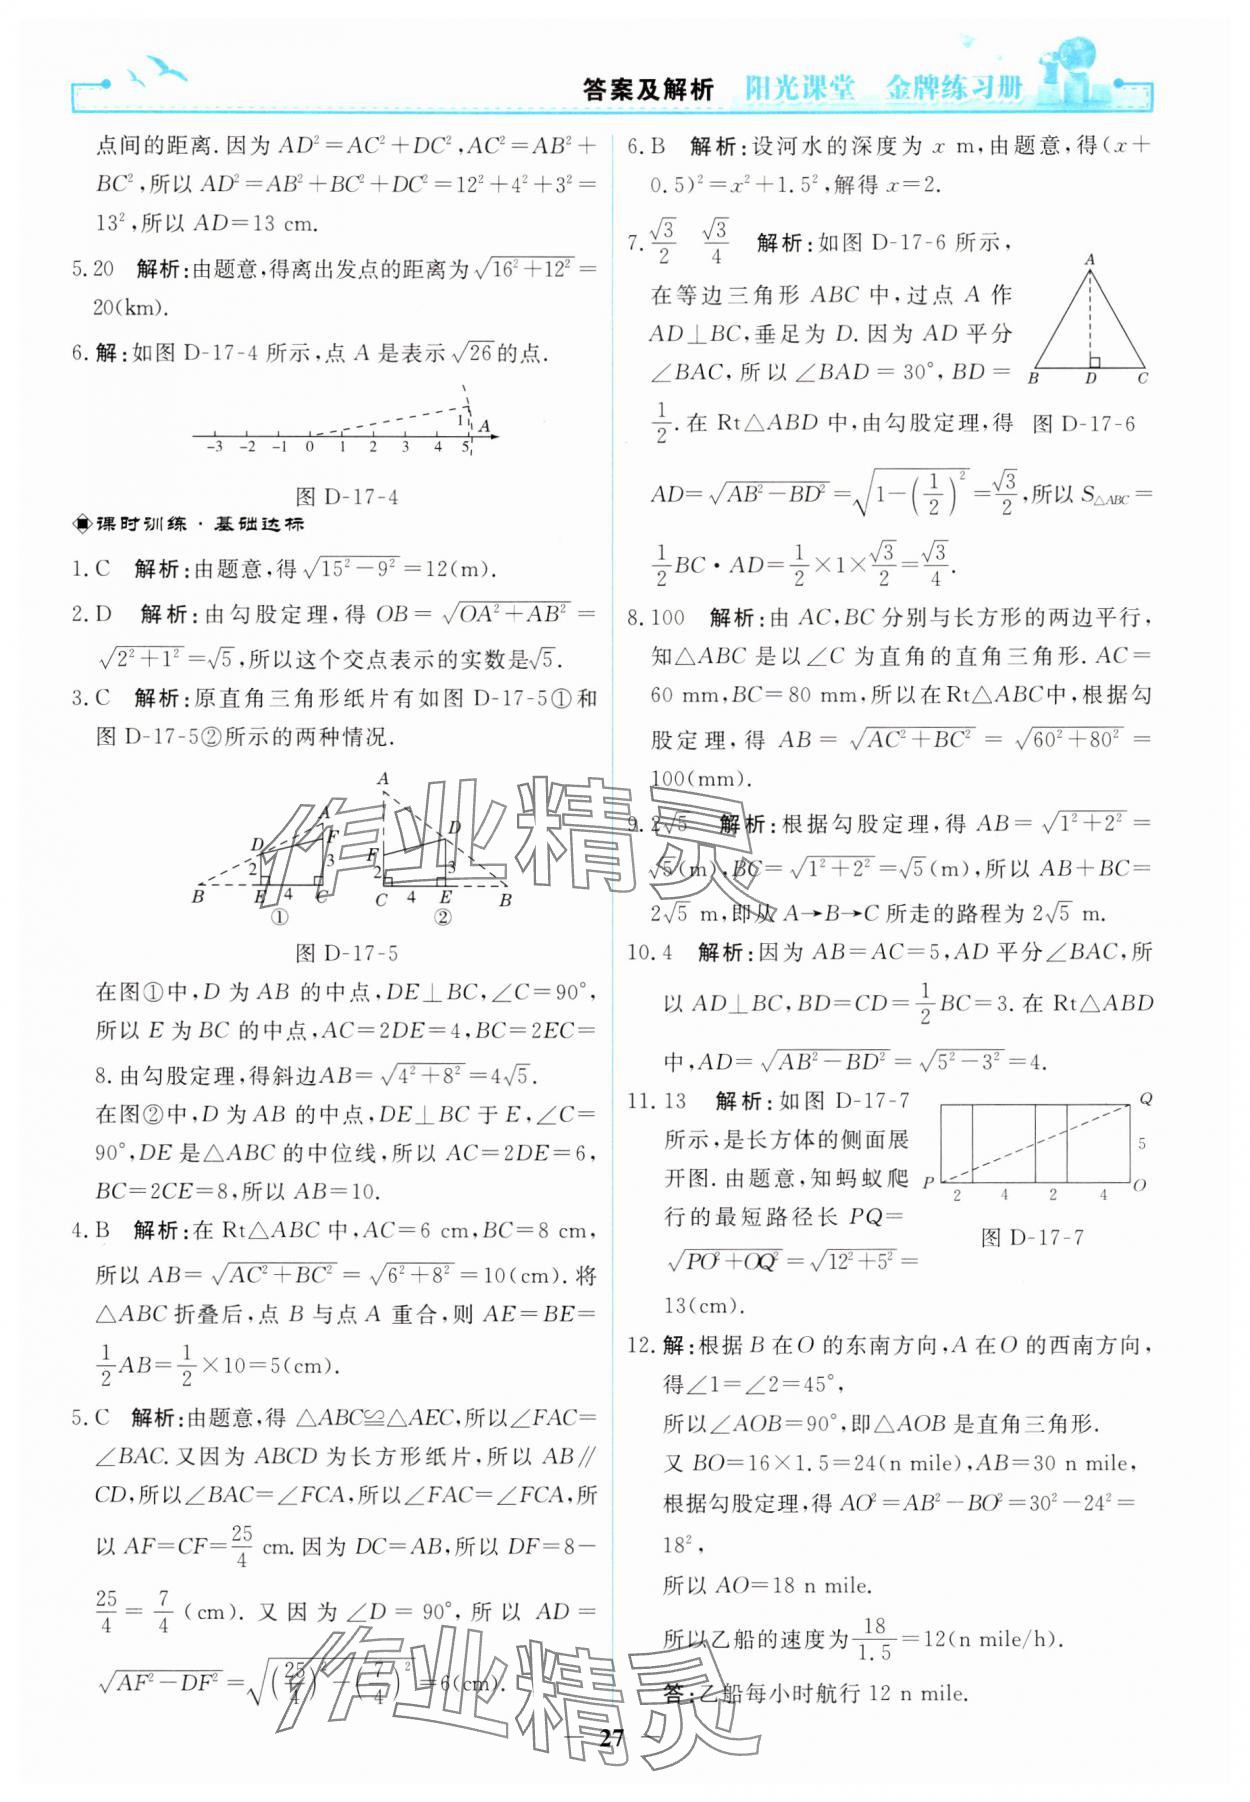 答案及解析 阳光课堂 金牌练习册
点间的距离.因为 AD²=AC²+DC²,AC²=AB²+
BC²,所以 AD²=AB²+BC²+DC²=12²+4²+3²=
13²,所以 AD=13 cm.
5.20 解析:由题意,得离出发点的距离为√(16²+12²)=
20(km).
6.解:如图 D-17-4 所示,点 A 是表示√26的点.
1 A
-3 -2 -1 0 1 2 3 4 5
图 D-17-4
课时训练·基础达标
1.C 解析:由题意,得√(15²-9²)=12(m).
2.D 解析:由勾股定理,得 OB=√(OA²+AB²)=
√(2²+1²)=√5,所以这个交点表示的实数是√5.
3.C 解析:原直角三角形纸片有如图 D-17-5①和
图 D-17-5②所示的两种情况.
A D F 2 3 B E 4 C ①
A D F 2 3 C 4 E B ②
图 D-17-5
在图①中,D 为 AB 的中点,DE⊥BC,∠C=90°,
所以 E 为 BC 的中点,AC=2DE=4,BC=2EC=
8.由勾股定理,得斜边AB=√(4²+8²)=4√5.
在图②中,D 为 AB 的中点,DE⊥BC 于 E,∠C=
90°,DE 是△ABC 的中位线,所以 AC=2DE=6,
BC=2CE=8,所以 AB=10.
4.B 解析:在 Rt△ABC 中,AC=6 cm,BC=8 cm,
所以 AB=√(AC²+BC²)=√(6²+8²)=10(cm).将
△ABC 折叠后,点 B 与点 A 重合,则 AE=BE=
1/2 AB=1/2×10=5(cm).
5.C 解析:由题意,得 △ABC≌△AEC,所以∠FAC=
∠BAC.又因为 ABCD 为长方形纸片,所以 AB∥
CD,所以∠BAC=∠FCA,所以∠FAC=∠FCA,所
以 AF=CF=25/4 cm.因为 DC=AB,所以 DF=8-
25/4=7/4(cm).又因为∠D=90°,所以 AD=
√(AF²-DF²)=√((25/4)²-(7/4)²)=6(cm).
6.B 解析:设河水的深度为 x m,由题意,得(x+
0.5)²=x²+1.5²,解得 x=2.
7.√3/2 √3/4 解析:如图 D-17-6 所示,
在等边三角形 ABC 中,过点 A 作
AD⊥BC,垂足为 D.因为 AD 平分
∠BAC,所以∠BAD=30°,BD=
1/2.在 Rt△ABD 中,由勾股定理,得
A
B D C
图 D-17-6
AD=√(AB²-BD²)=√(1-(1/2)²)=√3/2,所以 S△ABC=
1/2 BC·AD=1/2×1×√3/2=√3/4.
8.100 解析:由 AC,BC 分别与长方形的两边平行,
知△ABC 是以∠C 为直角的直角三角形.AC=
60 mm,BC=80 mm,所以在Rt△ABC中,根据勾
股定理,得 AB=√(AC²+BC²)=√(60²+80²)=
100(mm).
9.2√5 解析:根据勾股定理,得 AB=√(1²+2²)=
√5(m),BC=√(1²+2²)=√5(m),所以 AB+BC=
2√5 m,即从 A→B→C 所走的路程为 2√5 m.
10.4 解析:因为 AB=AC=5,AD 平分∠BAC,所
以 AD⊥BC,BD=CD=1/2 BC=3.在 Rt△ABD
中,AD=√(AB²-BD²)=√(5²-3²)=4.
11.13 解析:如图 D-17-7
所示,是长方体的侧面展
开图.由题意,知蚂蚁爬
行的最短路径长 PQ=
√(PO²+OQ²)=√(12²+5²)=
13(cm).
Q
5
P 2 4 2 4 O
图 D-17-7
12.解:根据 B 在O 的东南方向,A 在O 的西南方向,
得∠1=∠2=45°,
所以∠AOB=90°,即△AOB 是直角三角形.
又 BO=16×1.5=24(n mile),AB=30 n mile,
根据勾股定理,得 AO²=AB²-BO²=30²-24²=
18²,
所以 AO=18 n mile.
所以乙船的速度为18/1.5=12(n mile/h).
答:乙船每小时航行 12 n mile.
作业精灵
作业精灵
— 27 —